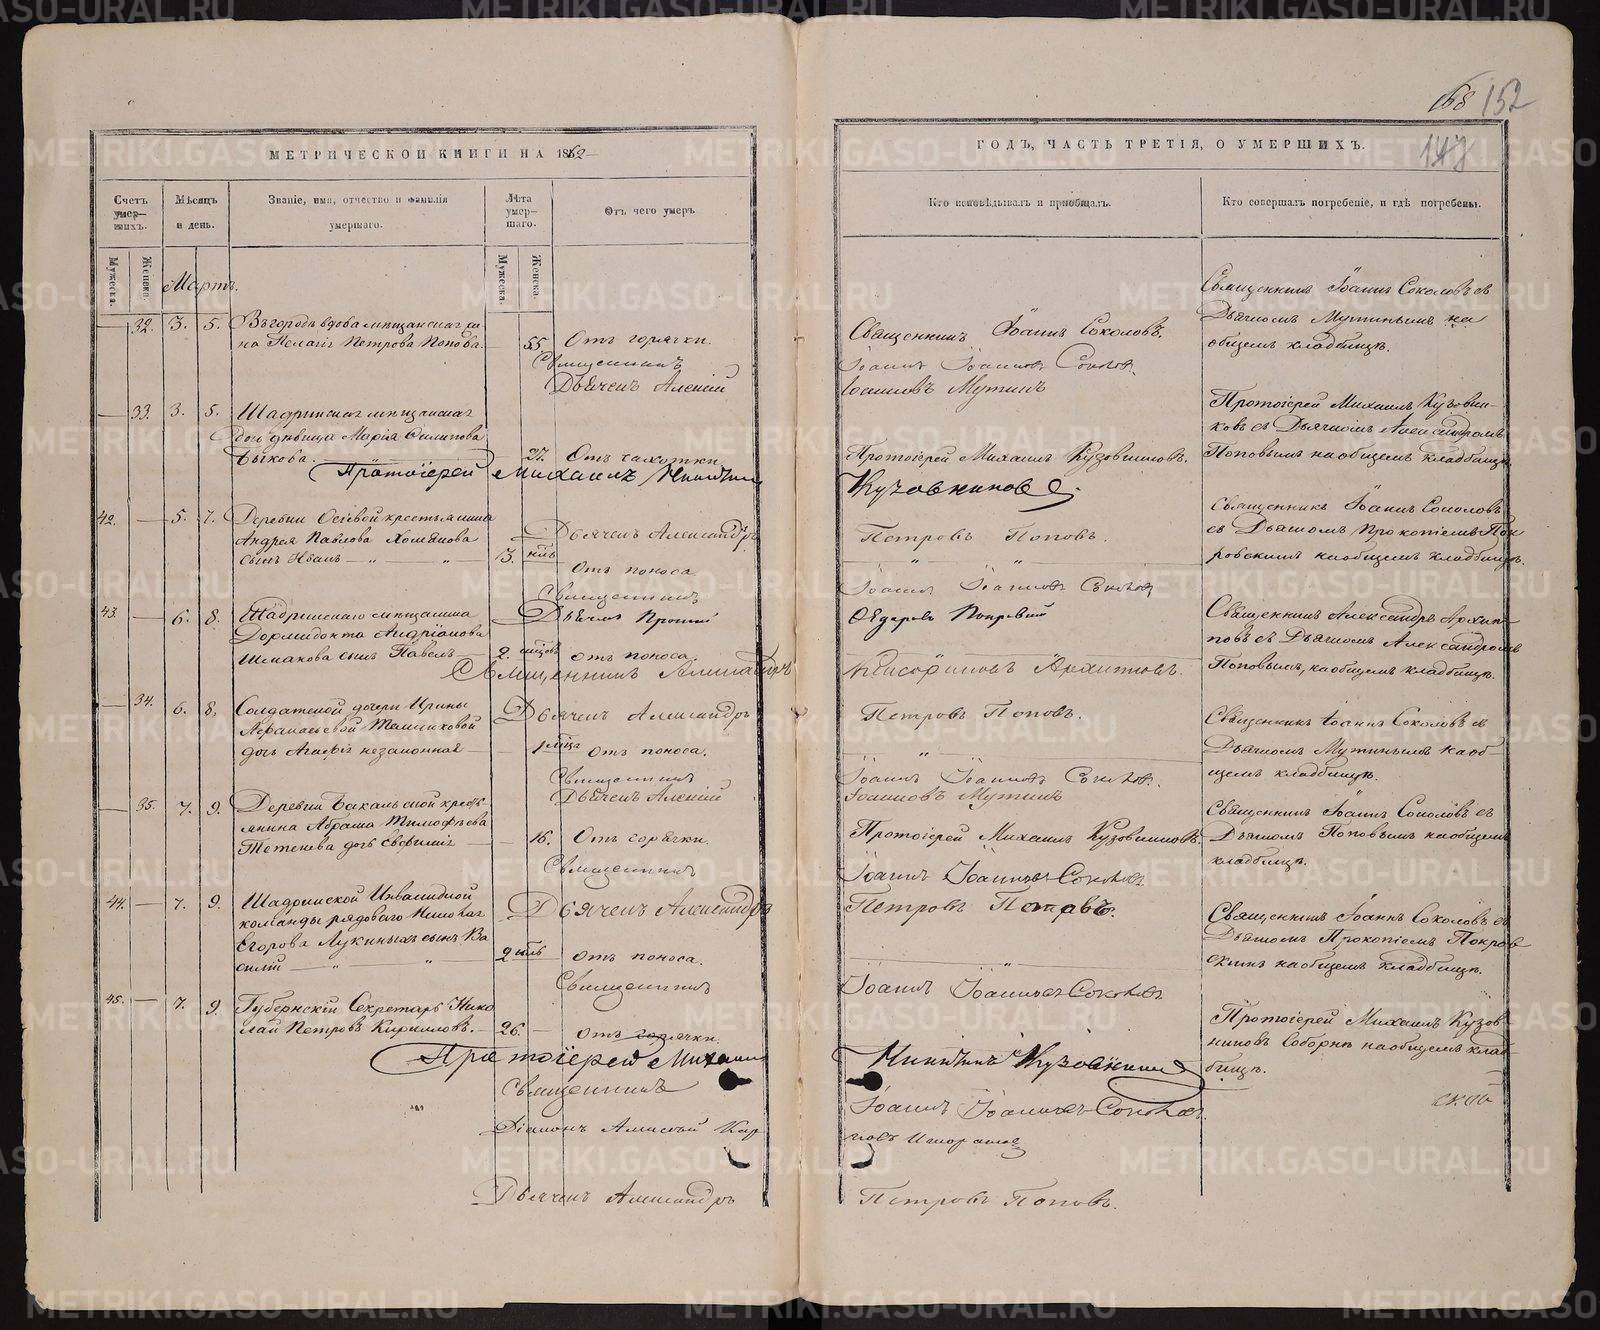 168 152
147
МЕТРИЧЕСКОЙ КНИГИ НА 1862
ГОДЪ, ЧАСТЬ ТРЕТІЯ, О УМЕРШИХЪ.
Счетъ умер-шихъ.
Мѣсяцъ и день.
Званіе, имя, отчество и фамилія умершаго.
Лѣта умер-шаго.
Отъ чего умеръ
Кто исповѣдывалъ и пріобщалъ.
Кто совершалъ погребеніе, и гдѣ погребены.
Мужеска. Женска.
Мужеска. Женска.
Мартъ.
32. 3. 5.
на Пелагія Петрова Попова. 55 Отъ горячки.
Священникъ Іоаннъ Соколовъ.
Священникъ Іоаннъ Соколовъ съ
Дьячкомъ Мутинымъ на
общемъ кладбищѣ.
Священникъ Іоаннъ Іоанновъ Соколовъ
Дьячекъ Алексій Іоанновъ Мутинъ
33. 3. 5. Шадринская мѣщанская
дочь дѣвица Марія Филипова
Быкова. 27. Отъ чахотки
Протоіерей Михаилъ Кузовниковъ.
Протоіерей Михаилъ Кузовни-
ковъ съ Дьячкомъ Александромъ
Поповымъ на общемъ кладбищѣ.
Протоіерей Михаилъ Никитинъ Кузовниковъ
Дьячекъ Александръ Петровъ Поповъ.
42. 5. 7. Деревни Осѣевой крестьянина
Андрея Павлова Хомякова
сынъ Иванъ 3. Отъ поноса.
Священникъ Іоаннъ Соколовъ
съ Дьячкомъ Прокопіемъ Пок-
ровскимъ на общемъ кладбищѣ.
Священникъ Іоаннъ Іоанновъ Соколовъ
Дьячекъ Прокопій Ѳедоровъ Покровскій
43. 6. 8. Шадринскаго мѣщанина
Дормидонта Андріанова
Шмакова сынъ Павелъ 2. отъ поноса.
Священникъ Александръ Архип-
повъ съ Дьячкомъ Александромъ
Поповымъ, на общемъ кладбищѣ.
Священникъ Александръ Архипповъ.
Дьячекъ Александръ Петровъ Поповъ.
34. 6. 8. Солдатской дочери Ирины
дочь Агафія незаконная 1 Отъ поноса.
Священникъ Іоаннъ Соколовъ съ
Дьячкомъ Мутинымъ на об-
щемъ кладбищѣ.
Священникъ Іоаннъ Іоанновъ Соколовъ.
Дьячекъ Алексій Іоанновъ Мутинъ
35. 7. 9. Деревни Бакальской кресть-
янина Абрама Тимофѣева
Тетенева дочь Евфимія 16. Отъ горячки.
Протоіерей Михаилъ Кузовниковъ.
Священникъ Іоаннъ Соколовъ съ
Дьячкомъ Поповымъ на общемъ
кладбищѣ.
Священникъ Іоаннъ Іоанновъ Соколовъ
Дьячекъ Александръ Петровъ Поповъ.
44. 7. 9. Шадринской Инвалидной
команды рядоваго
Егорова Лукиныхъ сынъ Ва
силій 2 отъ поноса.
Священникъ Іоаннъ Соколовъ съ
Дьячкомъ Прокопіемъ Покров
скимъ на общемъ кладбищѣ.
Священникъ Іоаннъ Іоанновъ Соколовъ
45. 7. 9. Губернскій Секретарь Нико
лай Петровъ Кириловъ. 26 отъ горячки.
Протоіерей Михаилъ Кузов
никовъ Соборнѣ на общемъ клад-
бищѣ.
Протоіерей Михаилъ Никитинъ Кузовниковъ
Священникъ Іоаннъ Іоанновъ Соколовъ.
Діаконъ Алексѣй
Дьячекъ Александръ Петровъ Поповъ.
METRIKI.GASO-URAL.RU